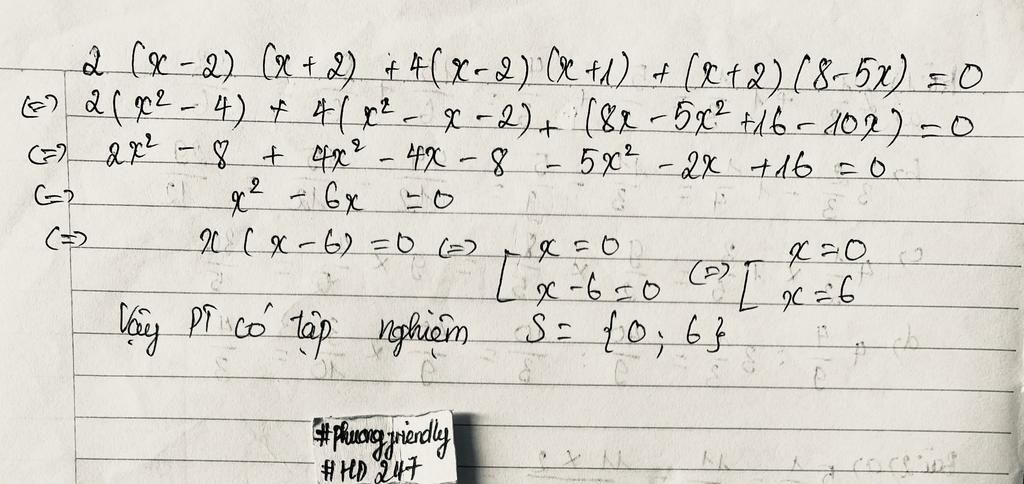 2 (x-2) (x+2) + 4(x-2) (x+1) + (x+2) (8-5x) = 0
(=) 2(x² - 4) + 4(x² - x - 2) + (8x - 5x² + 16 - 10x) = 0
(=) 2x² - 8 + 4x² - 4x - 8 - 5x² - 2x + 16 = 0
(=) x² - 6x = 0
(=) x (x-6) = 0 (=) [ x = 0 (=) [ x = 0
x - 6 = 0 x = 6
Vậy PT có tập nghiệm S = {0; 6}
#phuongfriendly
#HD247